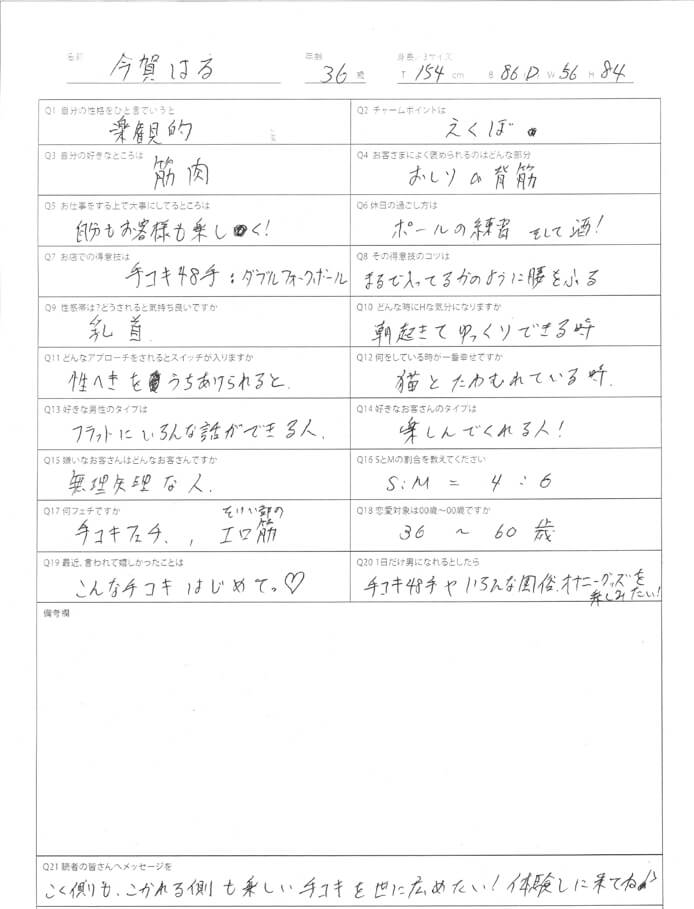 名前 今賀はる 年齢 36 歳 身長/3サイズ T 154 cm B 86(D) W 56 H 84
Q1 自分の性格をひと言でいうと
楽観的
Q2 チャームポイントは
えくぼ
Q3 自分の好きなところは
筋肉
Q4 お客さまによく褒められるのはどんな部分
おしりの背筋
Q5 お仕事をする上で大事にしてるところは
自分もお客様も楽しく!
Q6 休日の過ごし方は
ポールの練習 そして酒!
Q7 お店での得意技は
手コキ48手:ダブルフォークボール
Q8 その得意技のコツは
まるで入ってるかのように腰をふる
Q9 性感帯は?どうされると気持ち良いですか
乳首
Q10 どんな時にHな気分になりますか
朝起きてゆっくりできる時
Q11 どんなアプローチをされるとスイッチが入りますか
性へきをうちあけられると.
Q12 何をしている時が一番幸せですか
猫とたわむれている時.
Q13 好きな男性のタイプは
フラットにいろんな話ができる人.
Q14 好きなお客さんのタイプは
楽しんでくれる人!
Q15 嫌いなお客さんはどんなお客さんですか
無理矢理な人.
Q16 SとMの割合を教えてください
S:M = 4:6
Q17 何フェチですか
手コキフェチ、, エロ筋
Q18 恋愛対象は00歳〜00歳ですか
36 〜 60 歳
Q19 最近、言われて嬉しかったことは
こんな手コキはじめてっ♡
Q20 1日だけ男になれるとしたら
手コキ48手やいろんな風俗、オナニーグッズを
楽しみたい!
備考欄
Q21 読者の皆さんへメッセージを
こく側も、こかれる側も楽しい手コキを世に広めたい!体験しに来てね♪